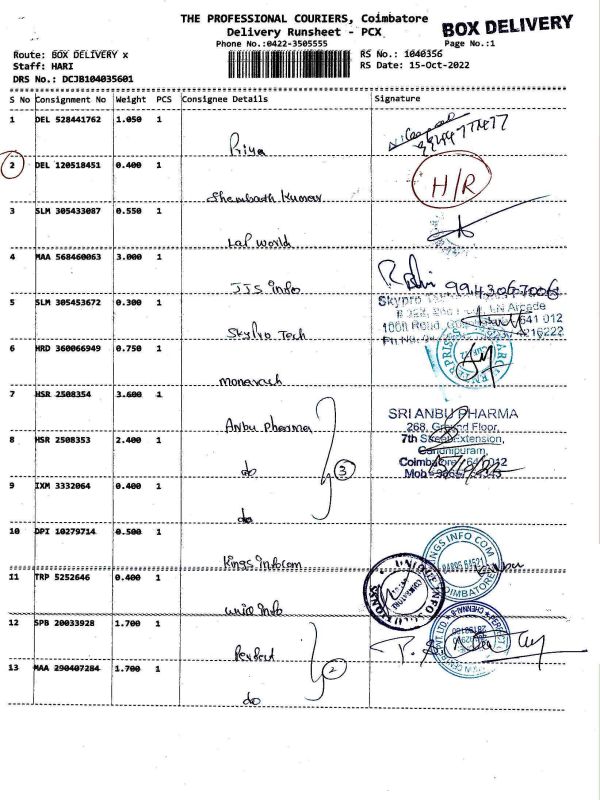 THE PROFESSIONAL COURIERS, Coimbatore
Delivery Runsheet - PCX
BOX DELIVERY
Phone No.:0422-3505555
Page No.:1
Route: BOX DELIVERY x
RS No.: 1040356
Staff: HARI
RS Date: 15-Oct-2022
DRS No.: DCJB104035601
S No Consignment No Weight PCS Consignee Details Signature
1 DEL 528441762 1.050 1
Priya
2 DEL 120518451 0.400 1
H/R
Shembadh Kumar
3 SLM 305433087 0.550 1
Lal world
4 MAA 568460063 3.000 1
9943067006
JJS info
5 SLM 305453672 0.300 1
Skypro
Arcade
641 012
Skypro Tech
6 HRD 360066949 0.750 1
monarach
7 HSR 2508354 3.600 1
Anbu Pharma
SRI ANBU PHARMA
268, Ground Floor,
7th Street Extension,
Gandhipuram,
8 HSR 2508353 2.400 1
do
3
9 IXM 3332064 0.400 1
do
10 DPI 10279714 0.500 1
Kings infocom
KINGS INFO COM
COIMBATORE
11 TRP 5252646 0.400 1
UNIQUE INFO SOLUTIONS
COIMBATORE
unio info
12 SPB 20033928 1.700 1
Perfect
2
13 MAA 290407284 1.700 1
do